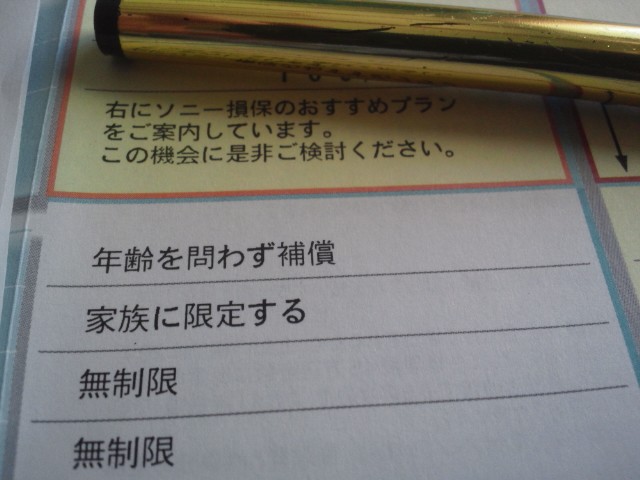 右にソニー損保のおすすめプラン
をご案内しています。
この機会に是非ご検討ください。
年齢を問わず補償
家族に限定する
無制限
無制限